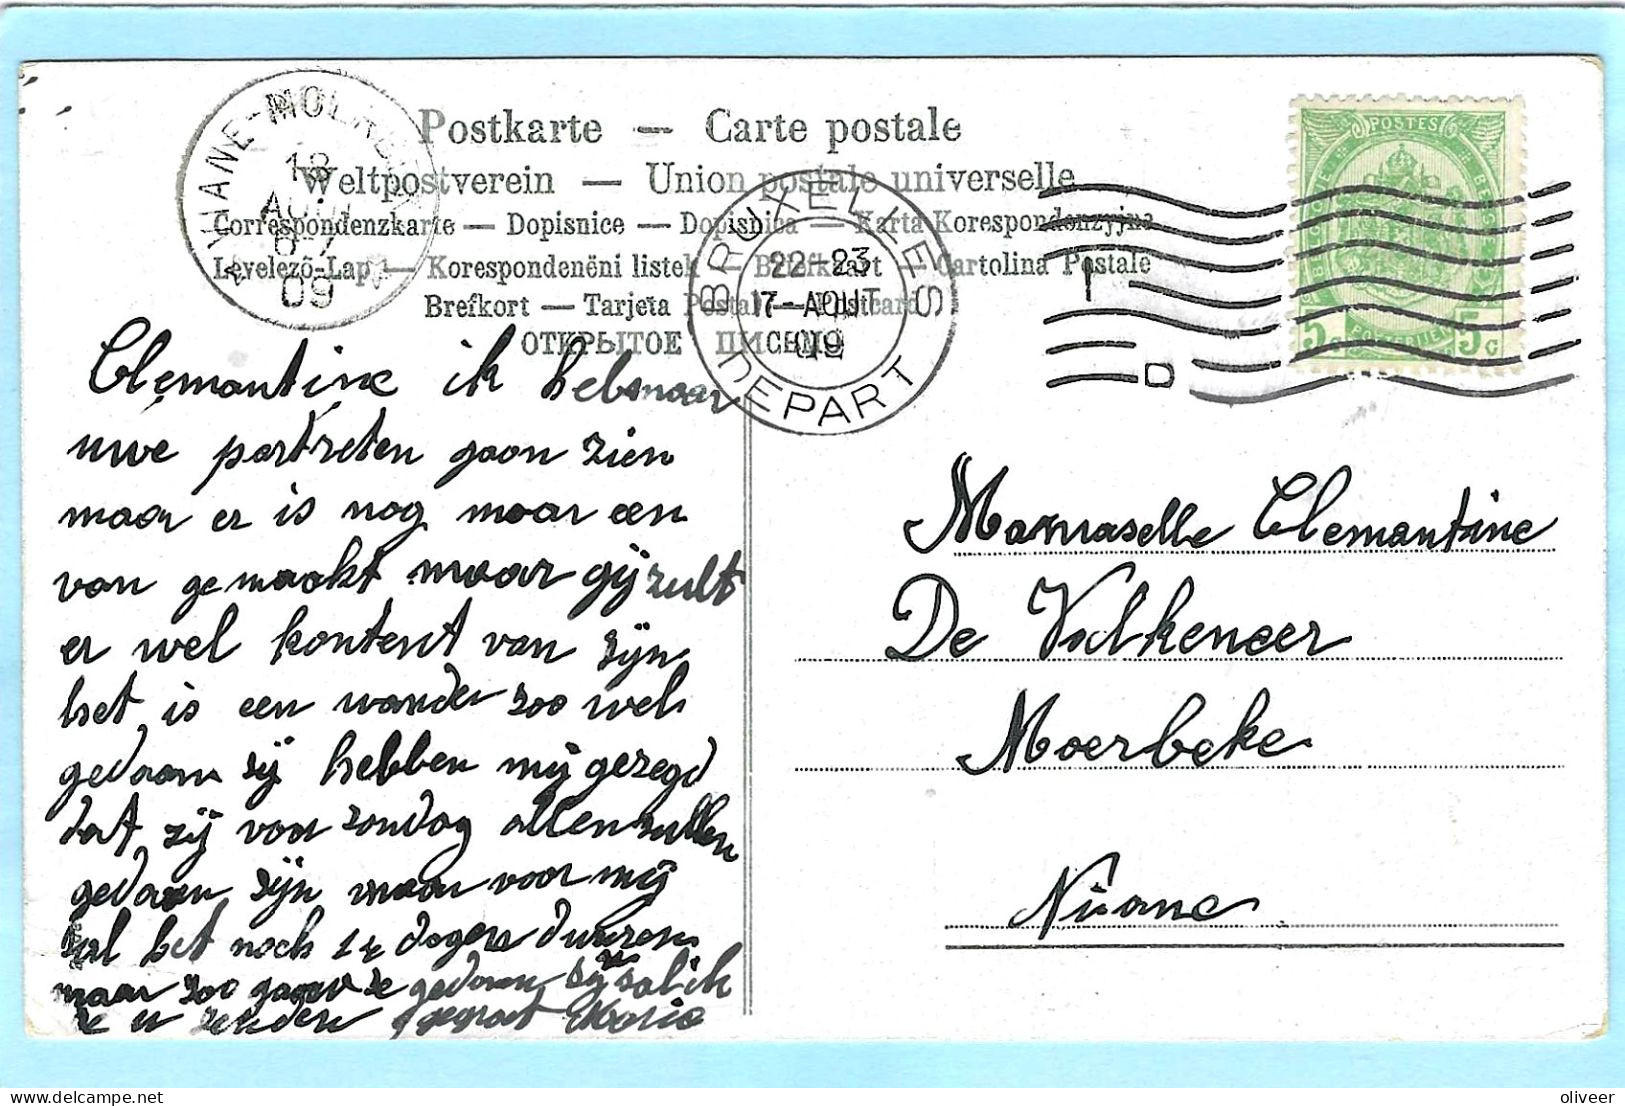 Postkarte — Carte postale
Weltpostverein — Union postale universelle
Correspondenzkarte — Dopisnice — Dopisnica — Karta Korespondenzyjna
Levelezö-Lap — Korespondenëni listek — Briefkaart — Cartolina Postale
Brefkort — Tarjeta Postal — Postcard
ОТКРЫТОЕ ПИСЬМО
18
AOUT
6-7
09
BRUXELLES
22-23
17-AOUT
09
DEPART
POSTES
BELGIQUE
5c POSTERIJEN 5c
Clemantine ik heb maar
uwe portreten gaan zien
maar er is nog maar een
van gemaakt maar gij zult
er wel kontent van zijn
het is een wonder zoo wel
gedaan zij hebben mij gezegd
dat zij voor zondag allen zullen
gedaan zijn maar voor mij
zal het noch 14 dagen duuren
maar zoo gauw ze gedaan zijn zal ik
ze u zenden gegroet Maria
Mamaselle Clemantine
De Valkeneer
Moerbeke
Ninane
oliveer